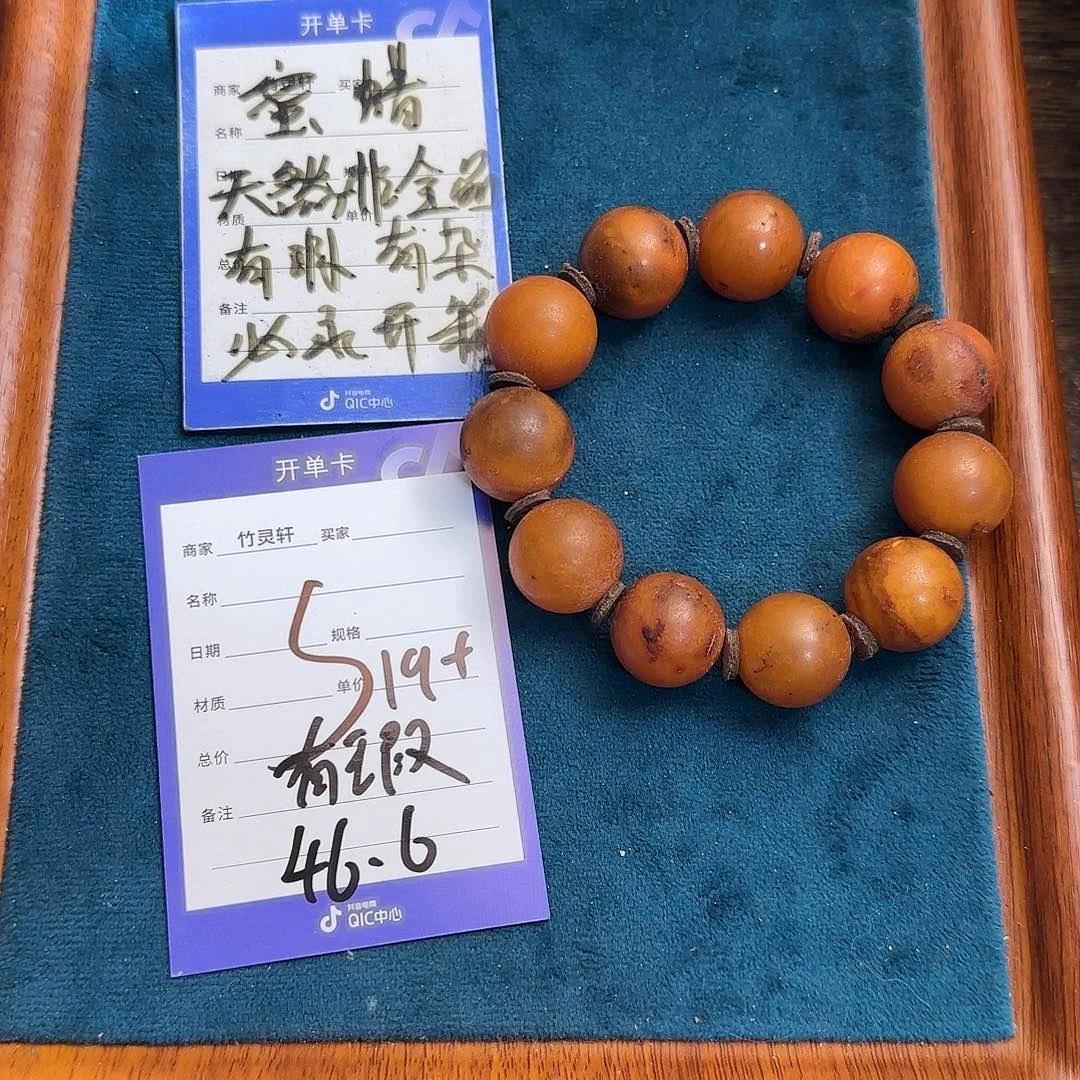 开单卡
商家 买家
蜜蜡
名称
天然非全品
材质 单价
有瑕有杂
备注
抖音电商
QIC中心
开单卡
商家 竹灵轩 买家
名称
日期 规格
19+
材质 单价
总价
有瑕
备注
46.6
抖音电商
QIC中心